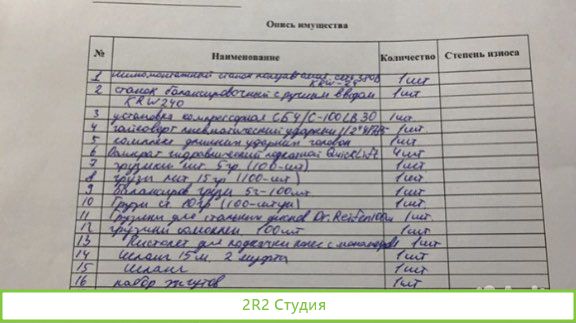 Опись имущества
№ Наименование Количество Степень износа
1 шиномонтажный станок 380В 1 шт
KRW-24
2 станок балансировочный с ручным вводом 1 шт
KRW 240
3 установка компрессорная СБ4/С-100 LB 30 1 шт
4 гайковерт пневматический ударный 1/2" 1 шт
5 комплект длинных ударных головок 1 шт
6 Домкрат гидравлический подкатной 4 шт
7 грузики шт. 5 гр. (100-шт) 1 шт
8 грузы шт. 15 гр. (100-шт) 1 шт
9 грузы 5г-100шт 1 шт
10 Грузы ст. 10гр. (100-штук) 1 шт
11 Грузики для стальных дисков Dr. Reifen 1 шт
12 грузики 100шт 1 шт
13 Пистолет для подкачки колес с манометром 1 шт
14 Шланг 15 м. 2 муфты 1 шт
15 Шланг 1 шт
16 набор жгутов 1 шт
2R2 Студия